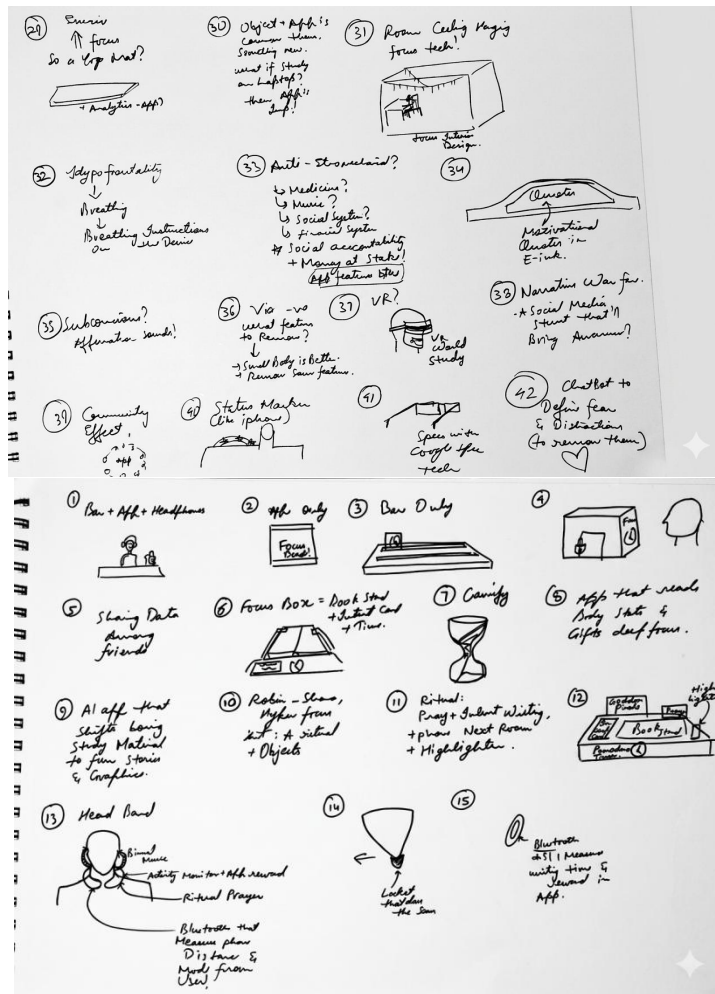 29
focus
So a Yop Mat?
+ Analytics - App?
30
Object + App is
common then.
Something new.
what if study
on Laptop?
then App is
Imp!
31
Room Ceiling Haging
focus tech!
focus Interior
Design.
32
Hypofrontality
Breathing
Breathing Instructions
on the Device
33
Anti -
Medicine?
Music?
Social System?
Financial System
# Social accountability
+ Money at Stake!
App features
34
Quotes
Motivational
Quotes in
E-ink.
35
Subconscious?
Affirmation Sounds!
36
Via -ve
what features
to Remove?
→ Small Body is Better.
+ Remove Some features.
37
VR?
VR
World
Study
38
Narrative War far.
-* Social Media
Stunt that'll
Bring Awareness?
39
Community
Effect
App
40
Status Marker
(like iphone)
41
Specs with
Google
tech
42
ChatBot to
Define fear
& Distractions
(to remove them)
1
Bar + App + Headphones
2
App Only
Focus
Band!
3
Bar Only
4
5
Sharing Data
Among
friends
6
Focus Box = Book Stand
+ Intent Card
+ Timer
7
Gamify
8
App that reads
Body State &
Gifts deep focus.
9
AI app that
Shifts boring
Study Material
to fun stories
& Graphics.
10
Robin - Sharma,
Hyper focus
: A ritual
+ Objects
11
Ritual:
Pray + Intent Writing,
+ phone Next Room
+ Highlighter.
12
High
Lighter
Book Stand
Pomodoro
Timer
13
Head Band
Music
Activity Monitor + App reward
Ritual Prayer
Bluetooth that
Measure phone
Distance &
Mode from
User!
14
Locket
that does
the Same
15
Bluetooth
Measure
writing time &
reward in
App.